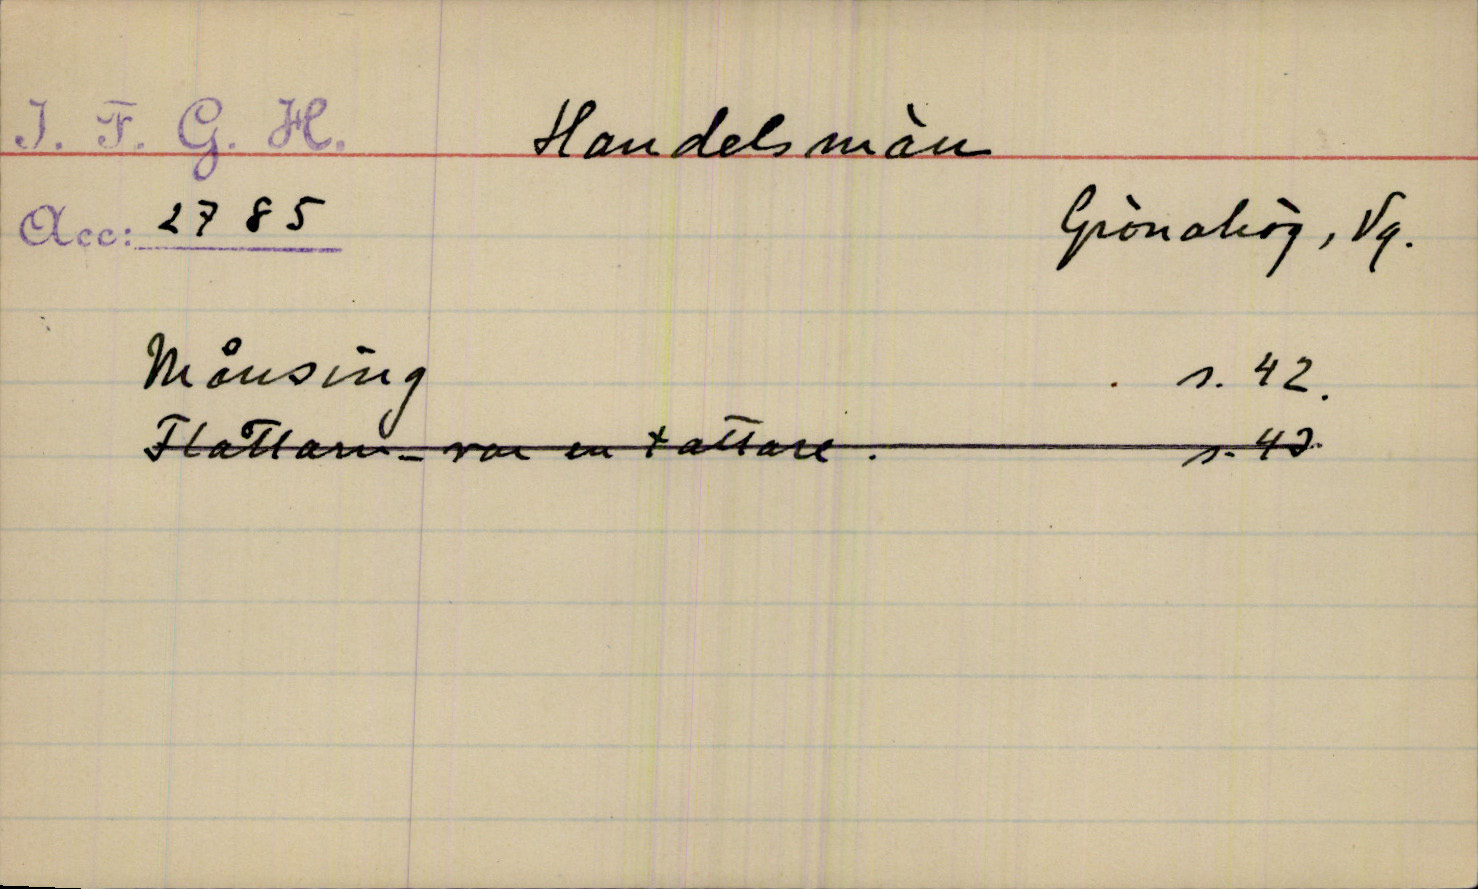 I. F. G. H.
Handelsmän
Acc: 2785
Grönahög, Vg.
Månsing s. 42.
Flåttarn - var en tattare. s. 42.